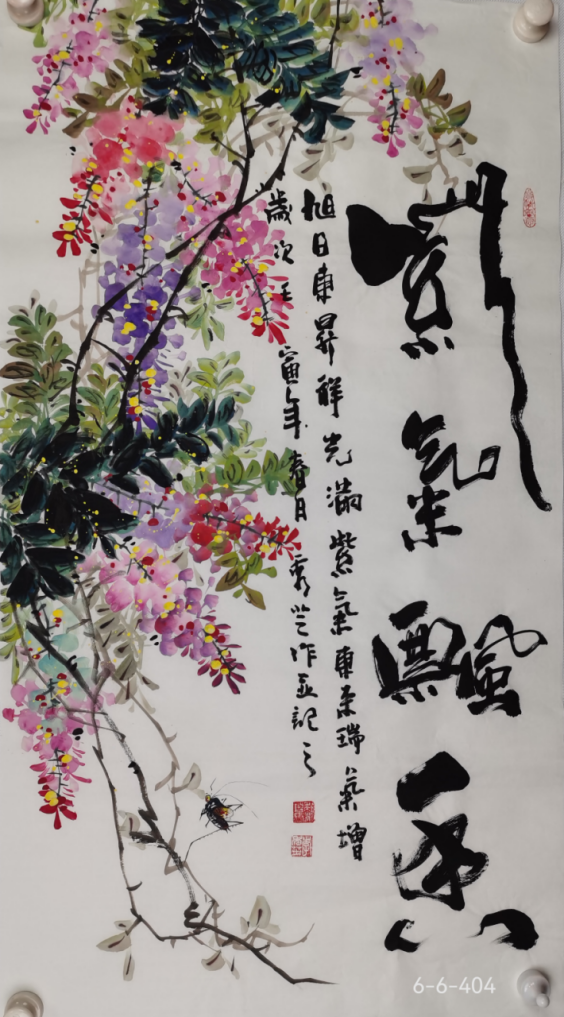 紫氣飄香
旭日東昇祥光滿紫氣東来瑞氣增
歲次壬寅年春日秀芝作並記之
6-6-404